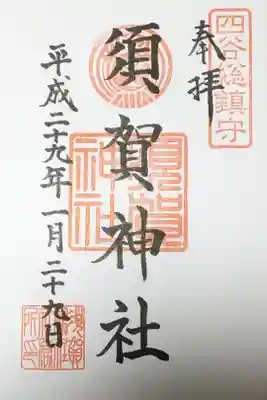 四谷総鎮守
奉拝
須賀神社
須賀神社
平成二十九年一月二十九日